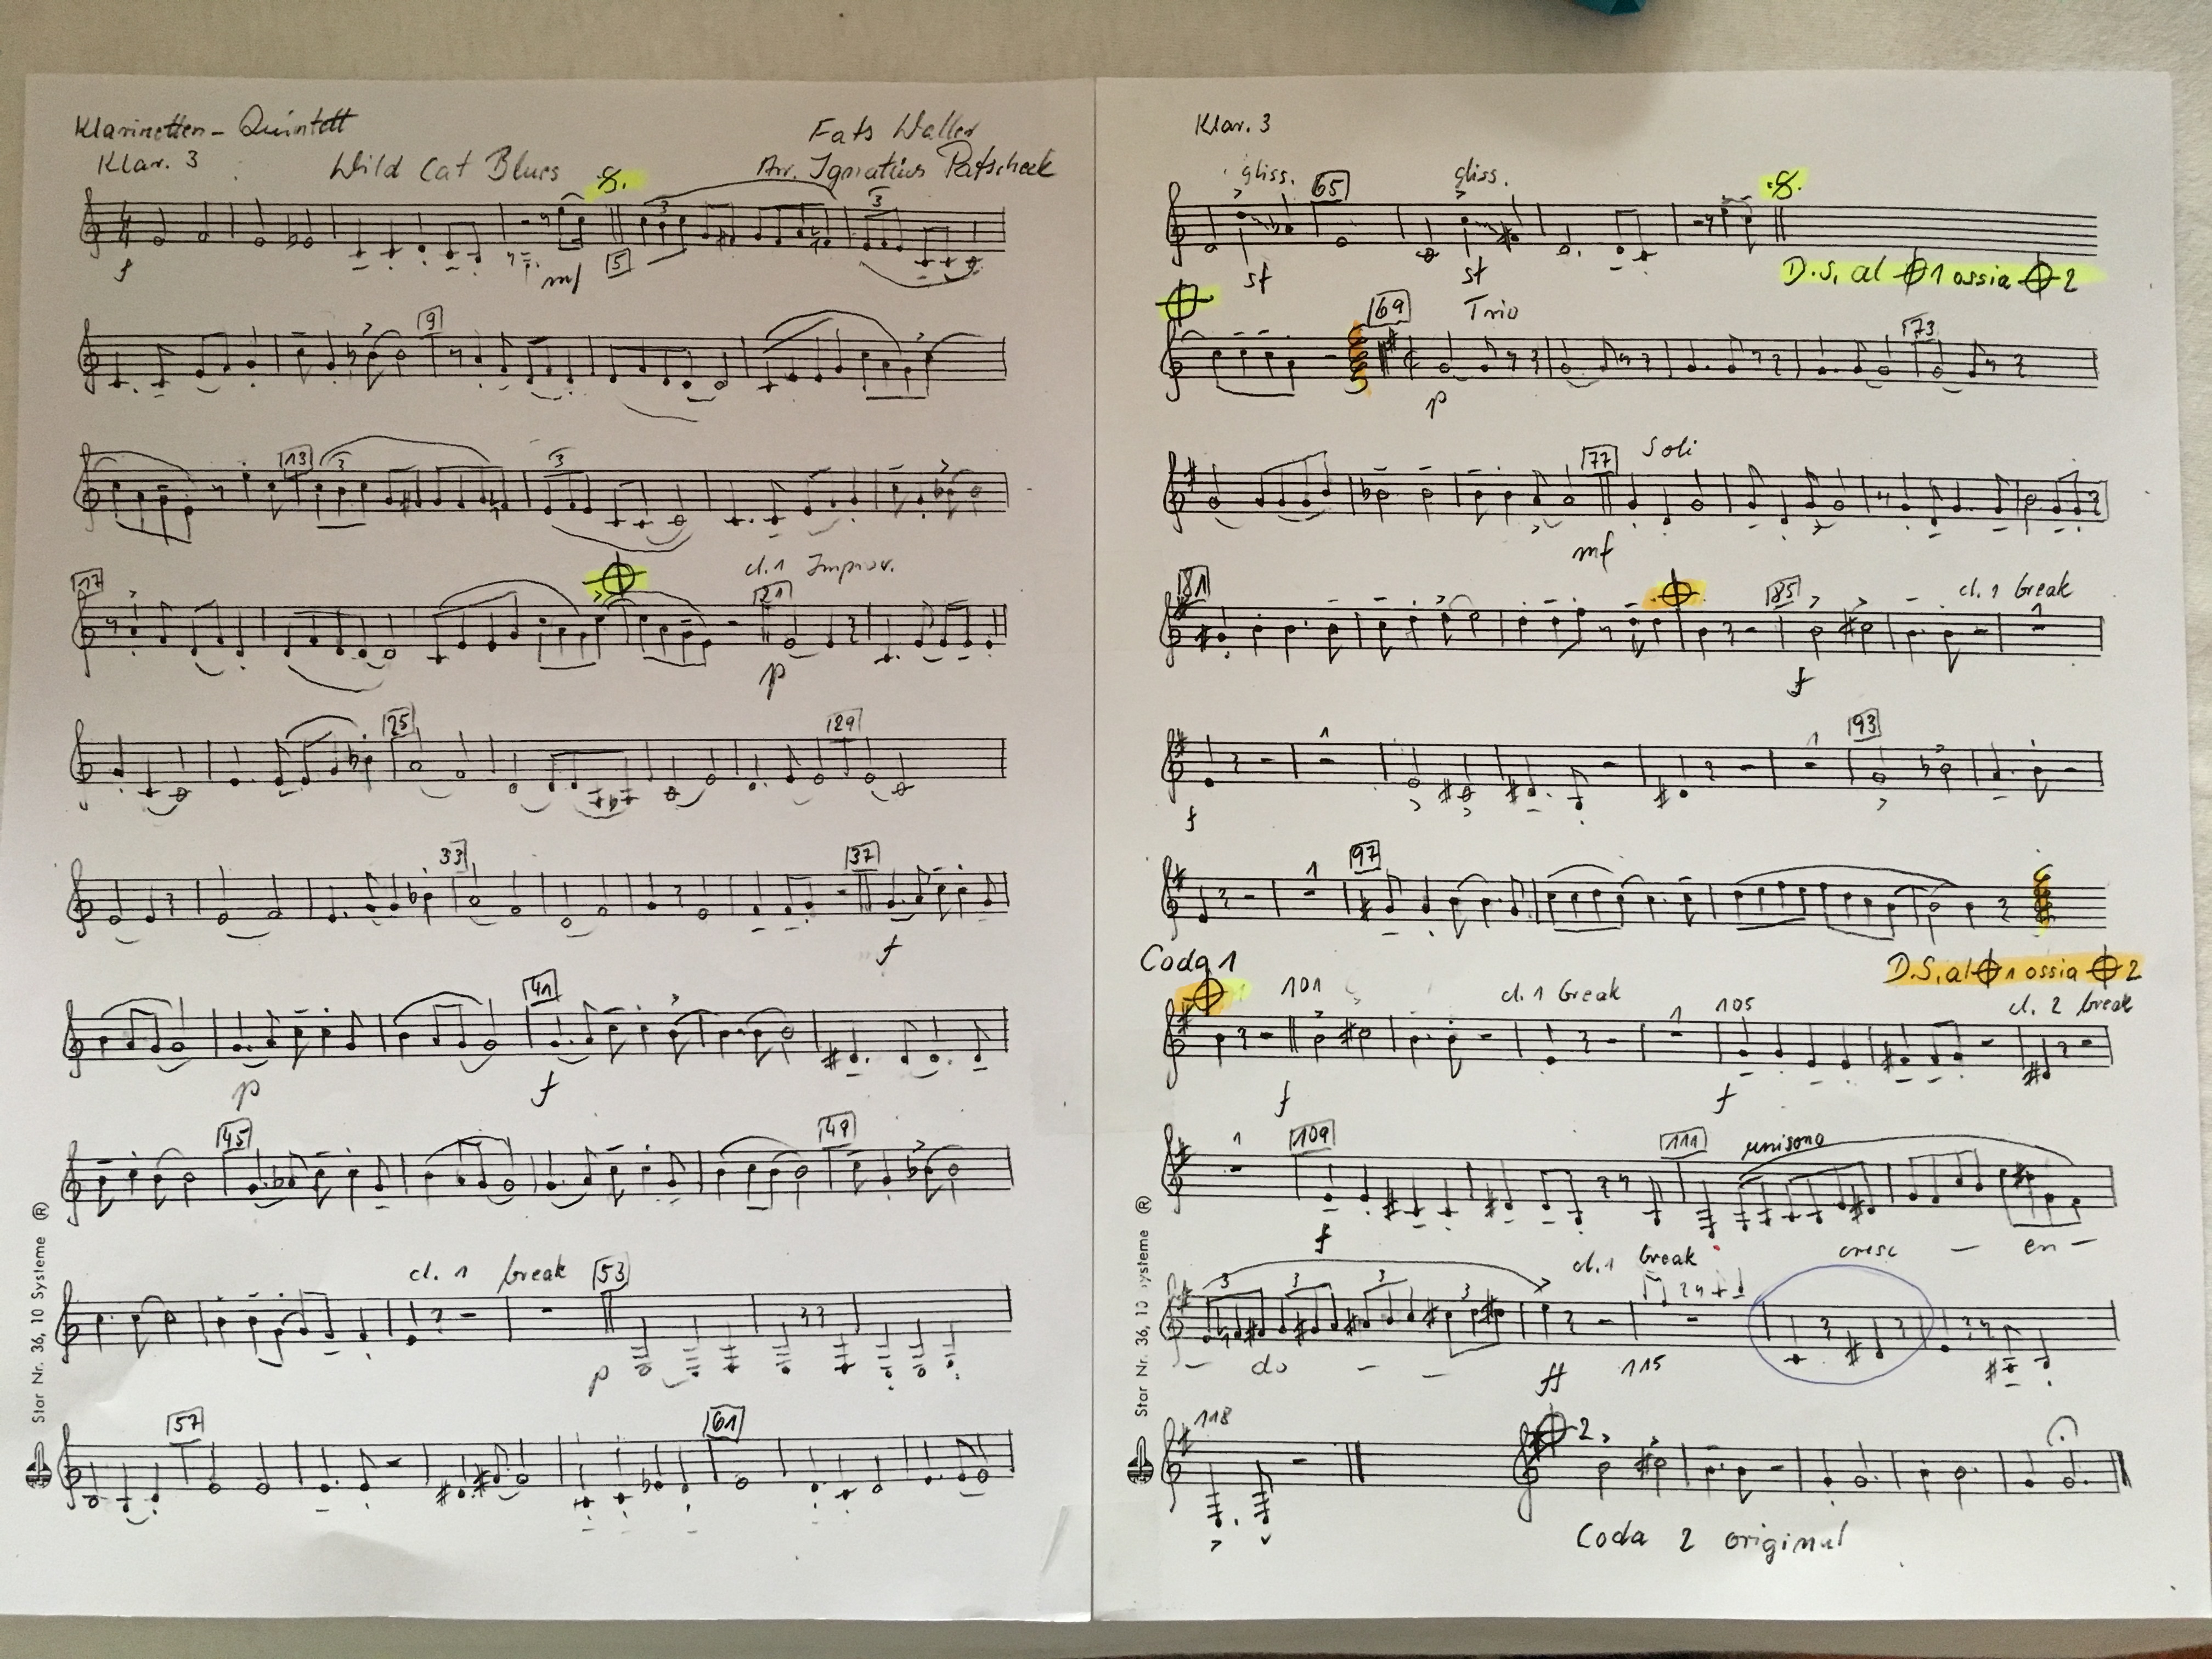 Klarinetten-Quintett
Fats Waller
Klar. 3
Wild Cat Blues
Arr. Ignatius Patscheck
f
mf
5
3
3
9
13
3
3
17
cl. 1 Improv.
21
p
25
29
33
37
f
41
p
f
45
49
cl. 1 break
53
p
57
61
Star Nr. 36, 10 Systeme ®
Klar. 3
gliss.
65
gliss.
sf
sf
D.S. al 1 ossia 2
69
Trio
73
p
77
Soli
mf
81
85
cl. 1 break
1
f
1
1
93
f
1
97
Coda 1
D.S. al 1 ossia 2
101
cl. 1 break
1
105
cl. 2 break
f
f
1
109
111
unisono
f
cresc - en -
3
3
3
3
cl. 1 break
- do - -
ff
115
118
2
Coda 2 original
Star Nr. 36, 10 Systeme ®